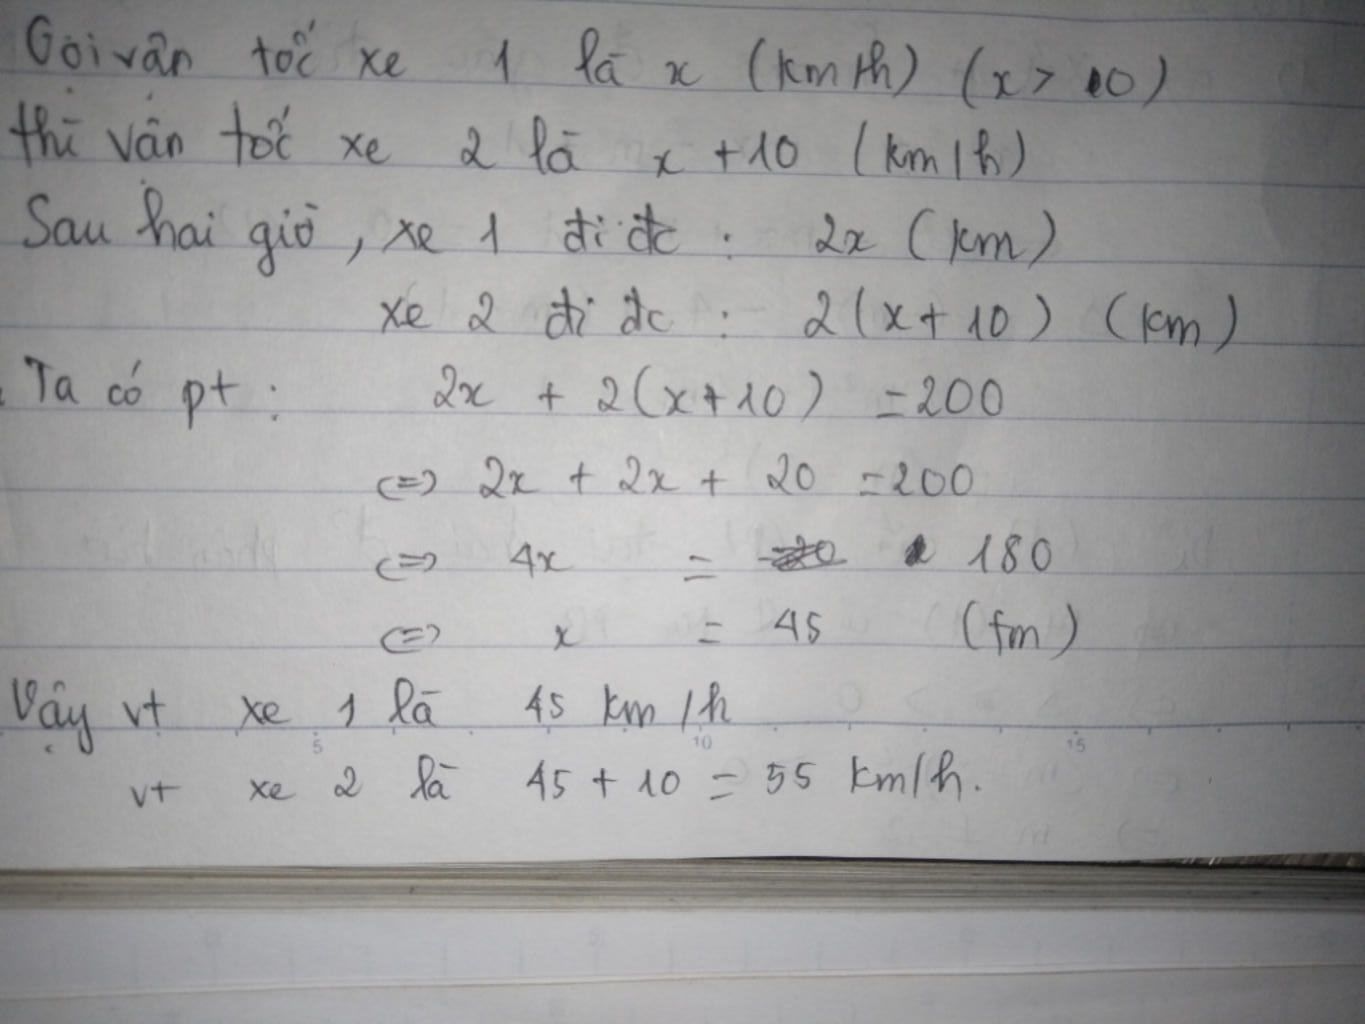 Gọi vận tốc xe 1 là x (km/h) (x > 0)
thì vận tốc xe 2 là x + 10 (km/h)
Sau hai giờ, xe 1 đi đc : 2x (km)
xe 2 đi đc : 2(x + 10) (km)
Ta có pt : 2x + 2(x + 10) = 200
<=> 2x + 2x + 20 = 200
<=> 4x = 180
<=> x = 45 (tm)
Vậy vt xe 1 là 45 km/h
5 10 15
vt xe 2 là 45 + 10 = 55 km/h.